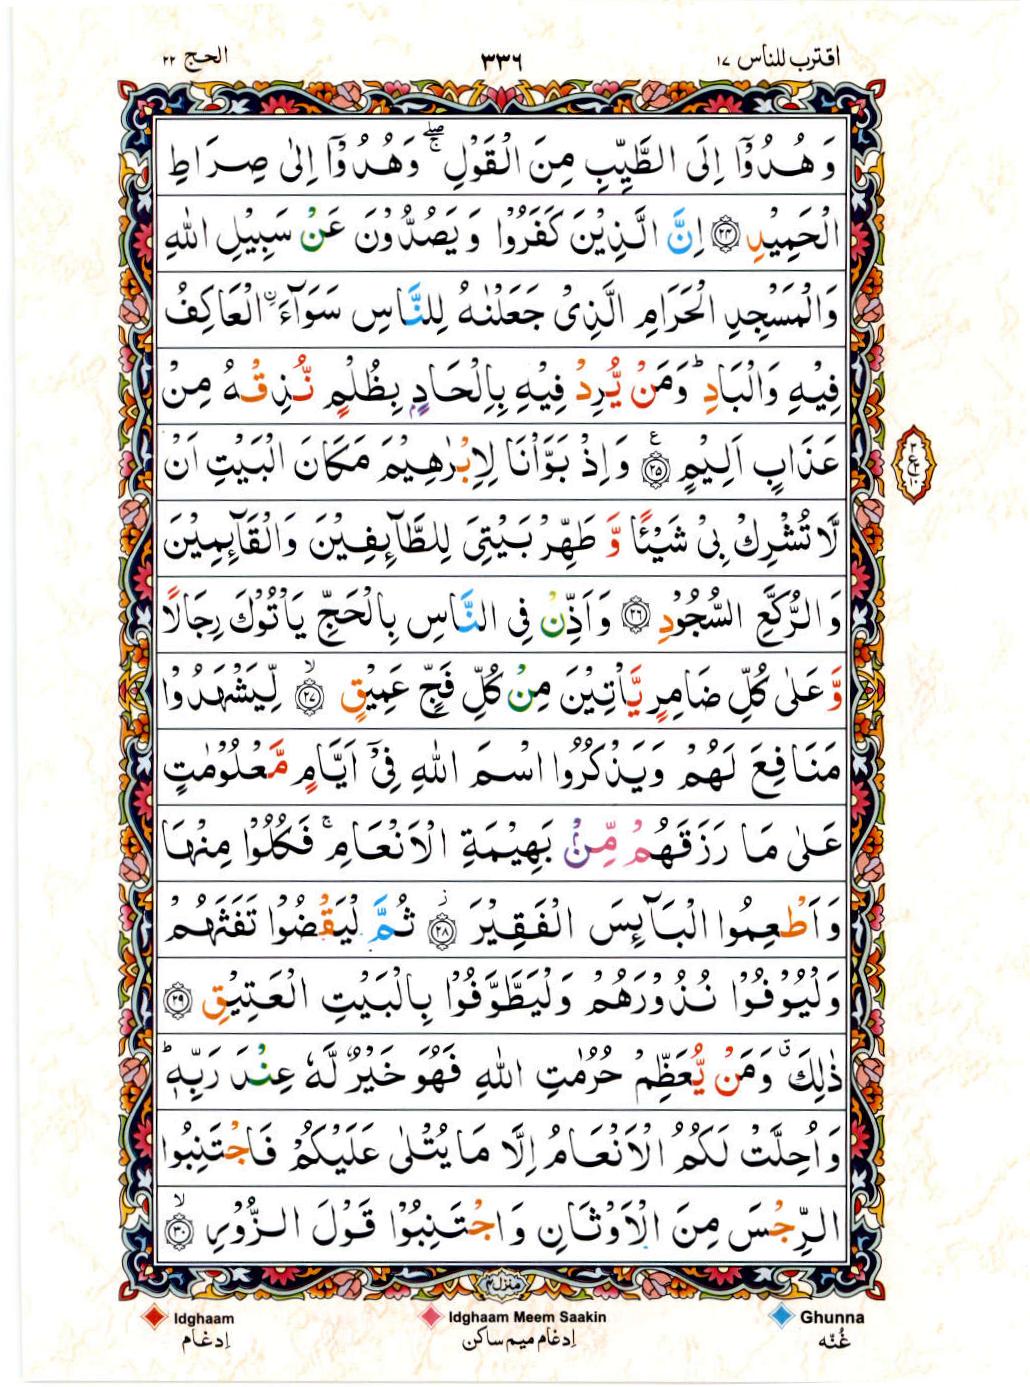 اقترب للناس ۱۷
۳۳۶
الحج ۲۲
وَهُدُوْۤا اِلَى الطَّيِّبِ مِنَ الْقَوْلِ ۖۚ وَهُدُوْۤا اِلٰى صِرَاطِ
الْحَمِيْدِ ﴿۲۴﴾ اِنَّ الَّذِيْنَ كَفَرُوْا وَيَصُدُّوْنَ عَنْ سَبِيْلِ اللّٰهِ
وَالْمَسْجِدِ الْحَرَامِ الَّذِىْ جَعَلْنٰهُ لِلنَّاسِ سَوَآءَ ۨ الْعَاكِفُ
فِيْهِ وَالْبَادِ ؕ وَمَنْ يُّرِدْ فِيْهِ بِاِلْحَادٍۭ بِظُلْمٍ نُّذِقْهُ مِنْ
عَذَابٍ اَلِيْمٍ ﴿۲۵﴾ ع وَاِذْ بَوَّاْنَا لِاِبْرٰهِيْمَ مَكَانَ الْبَيْتِ اَنْ
لَّا تُشْرِكْ بِىْ شَيْـًٔا وَّ طَهِّرْ بَيْتِىَ لِلطَّآئِفِيْنَ وَالْقَآئِمِيْنَ
وَ الرُّكَّعِ السُّجُوْدِ ﴿۲۶﴾ وَاَذِّنْ فِى النَّاسِ بِالْحَجِّ يَاْتُوْكَ رِجَالًا
وَّعَلٰى كُلِّ ضَامِرٍ يَّاْتِيْنَ مِنْ كُلِّ فَجٍّ عَمِيْقٍ ﴿۲۷﴾ ۙ لِّيَشْهَدُوْا
مَنَافِعَ لَهُمْ وَيَذْكُرُوا اسْمَ اللّٰهِ فِىْۤ اَيَّامٍ مَّعْلُوْمٰتٍ
عَلٰى مَا رَزَقَهُمْ مِّنْۢ بَهِيْمَةِ الْاَنْعَامِ ۚ فَكُلُوْا مِنْهَا
وَاَطْعِمُوا الْبَآئِسَ الْفَقِيْرَ ﴿۲۸﴾ ز ثُمَّ لْيَقْضُوْا تَفَثَهُمْ
وَلْيُوْفُوْا نُذُوْرَهُمْ وَلْيَطَّوَّفُوْا بِالْبَيْتِ الْعَتِيْقِ ﴿۲۹﴾
ذٰلِكَ ق وَمَنْ يُّعَظِّمْ حُرُمٰتِ اللّٰهِ فَهُوَ خَيْرٌ لَّهٗ عِنْدَ رَبِّهٖ ؕ
وَاُحِلَّتْ لَكُمُ الْاَنْعَامُ اِلَّا مَا يُتْلٰى عَلَيْكُمْ فَاجْتَنِبُوا
الرِّجْسَ مِنَ الْاَوْثَانِ وَاجْتَنِبُوْا قَوْلَ الزُّوْرِ ﴿۳۰﴾ ۙ
منزل ۴
Idghaam Idghaam Meem Saakin Ghunna
إدغام إدغام ميم ساكن غُنّه